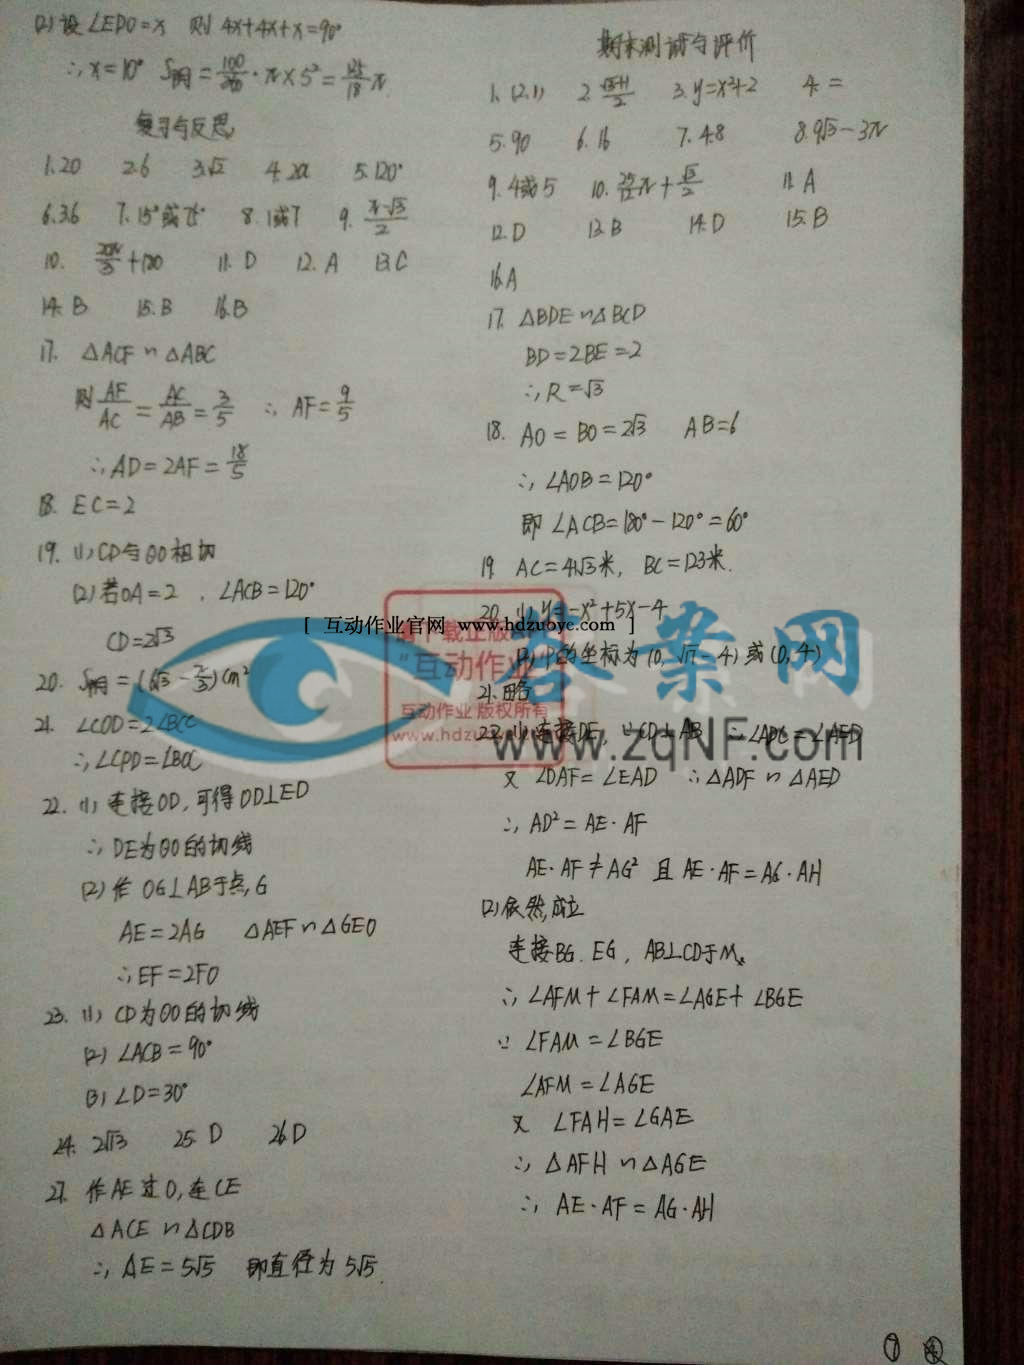 (2) 设∠EDO=x 则 4x+4x+x=90°
∴x=10° S阴=100/360·π×5²=125/18π
复习与反思
1.20 2.6 3.√2 4.2a 5.120°
6.3.6 7.15°或75° 8.1或7 9.(π-√3)/2
10. 20π/3+120 11.D 12.A 13.C
14.B 15.B 16.B
17. △ACF∽△ABC
则AF/AC=AC/AB=3/5 ∴AF=9/5
∴AD=2AF=18/5
18. EC=2
19. (1) CD与⊙O相切
(2) 若OA=2, ∠ACB=120°
CD=2√3
20. S阴=( cm²
21. ∠COD=2∠BCC
∴∠CPD=∠BOC
22. (1) 连接OD,可得OD⊥ED
∴DE为⊙O的切线
(2) 作 OG⊥AB于点G
AE=2AG △AEF∽△GEO
∴EF=2FO
23. (1) CD为⊙O的切线
(2) ∠ACB=90°
(3) ∠D=30°
24. 2√13 25.D 26.D
27. 作AE过O,连CE
△ACE∽△CDB
∴AE=5√5 即直径为5√5.
期末测试与评价
1.(2,1) 2. 3.y=x²+2 4.=
5.90 6.16 7.4.8 8.9√3-3π
9.4或5 10. π+√3/2 11.A
12.D 13.B 14.D 15.B
16.A
17. △BDE∽△BCD
BD=2BE=2
∴R=√3
18. AO=BO=2√3 AB=6
∴∠AOB=120°
即∠ACB=180°-120°=60°
19. AC=4√3米, BC=12.3米.
20. (1) y=-x²+5x-4
(2) P的坐标为(0, √17-4)或(0,4)
21.略
22. (1) 连接DE, ∵CD⊥AB ∴∠ADC=∠AED
又 ∠DAF=∠EAD ∴△ADF∽△AED
∴AD²=AE·AF
AE·AF≠AG² 且 AE·AF=AG·AH
(2) 依然成立
连接BG.EG, AB⊥CD于M
∴∠AFM+∠FAM=∠AGE+∠BGE
∵∠FAM=∠BGE
∠AFM=∠AGE
又 ∠FAH=∠GAE
∴△AFH∽△AGE
∴AE·AF=AG·AH
[ 互动作业官网 www.hdzuoye.com ]
下载正版
"互动作业"
互动作业 版权所有
www.hdzuoye
答案网
www.zqNF.com
⑦